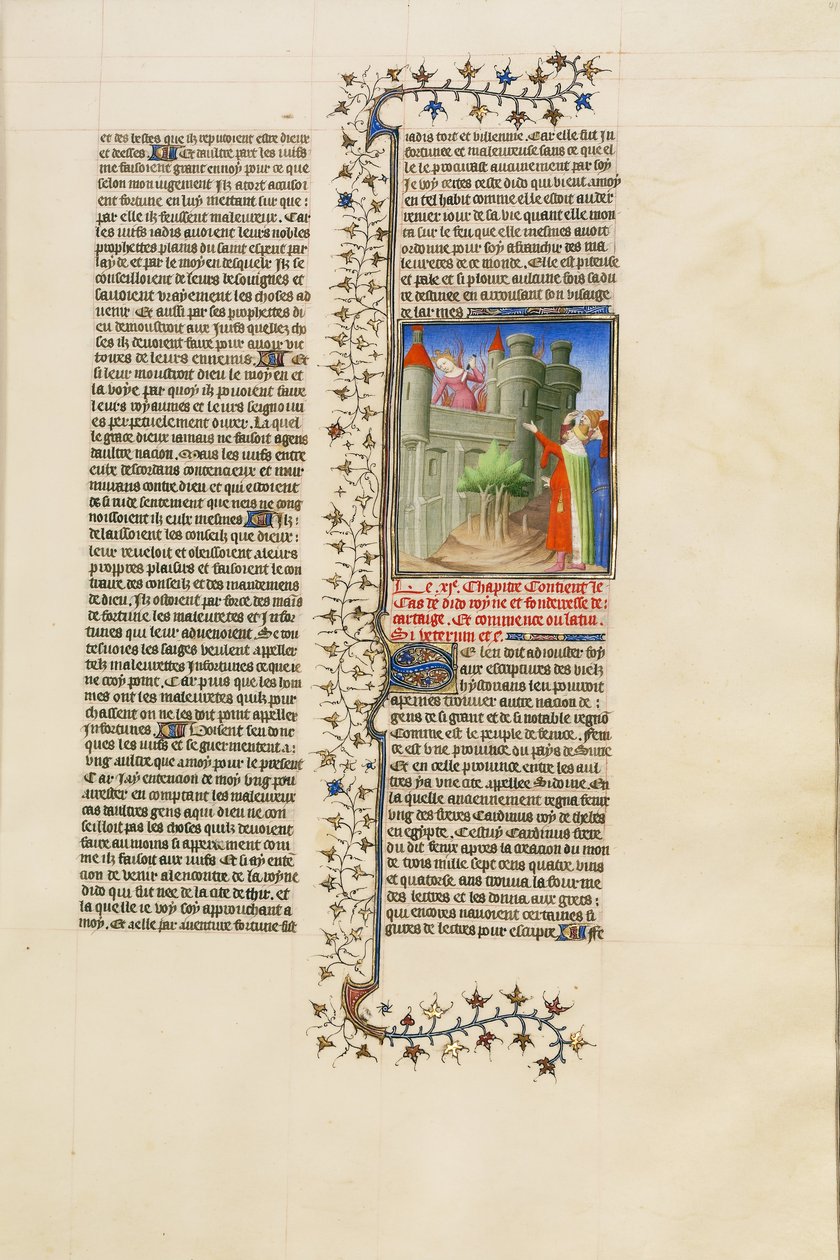 et des bestes que ilz reputoient estre dieux
et deesses. Et daultre part les iuifs
me faisoient grant ennoy pour ce que
selon mon iugement Ilz a tort accusoi
ent fortune en luy mettant sur que :
par elle ilz feussent maleureux. Car
les iuifs iadis auoient leurs nobles
prophettes plains du saint esperit par
layde et par le moyen desquelx Ilz se
conseilloient de leurs besoingnes et
sauoient vrayement les choses ad
uenir Et aussi par ses prophettes di
eu demoustroit aux Iuifs quelles cho
ses ilz deuoient faire pour auoir vic
toires de leurs ennemis. Et
si leur moustroit dieu le moyen et
la voye par quoy ilz pouoient faire
leurs royaumes et leurs seignouri
es perpetuelement durer. La quel
le grace dieux iamais ne faisoit a gens
daultre nacion. Mais les iuifs entre
eulx descordans contencieux et mur
murans contre dieu et qui estoient
de si rude sentement que neis ne cong
noissoient ilz eulx mesmes Ilz :
delaissoient les conseilz que dieux :
leur reueloit et obeissoient a leurs
propres plaisirs et faisoient le con
traire des conseilz et des mandemens
de dieu. Ilz ostoient par force des mains
de fortune les maleuretes et Infor
tunes qui leur aduenoient. Se tou
tesuoies les saiges veulent appeller
telz maleurettes Infortunes ce que ie
ne croy point. Car puis que les hom
mes ont les maleuretes quilz pour
chassent on ne les doit point appeller
Infortunes. Voisent sen donc
ques les iuifs et se guermentent a :
vng aultre que a moy pour le present
Car Iay entencion de moy vng pou
arrester en comptant les maleureux
cas daultres gens a qui dieu ne con
seilloit pas les choses quilz deuoient
faire au moins si appertement com
me ilz faisoit aux iuifs Et si ay ente
cion de venir alencontre de la royne
dido qui fut nee de la cite de thir. et
la quelle ie voy soy approuchant a
moy. Et a elle par auenture fortune fist
iadis tort et villennie. Car elle fut In
fortunee et maleureuse sans ce que el
le le procurast aucunement par soy
Je voy certes ceste dido qui vient a moy
en tel habit comme elle estoit au der
renier iour de sa vie quant elle mon
ta sur le feu que elle mesmes auoit
ordonne pour soy afranchir des ma
leuretes de ce monde. Elle est piteuse
et pale et si ploure aulcune fois sa du
re destinee en arrousant son visaige
de larmes
Le .xie. Chapitre Contient le
Cas de dido royne et fonderesse de :
cartaige. Et commence ou latin.
Si veterum etc.
SE len doit adiouster foy
aux escriptures des vielz
hystorians len pourroit
a peines trouuer autre nacion de :
gens de si grant et de si notable regno
Comme est le peuple de fenice. Feni
ce est vne prouince du pays de Surie
Et en celle prouince entre les aul
tres ya vne cite appellee Sidoine. En
la quelle anciennement regna fenix
vng des freres Cardinus roy de thebes
en egypte. Cestuy Cardinus frere
du dit fenix apres la creacion du mon
de trois mille sept cens quatre vins
et quatorse ans trouua la fourme
des lettres et les donna aux grecs :
qui encores nauoient certaines fi
gures de lectres pour escripre Fe